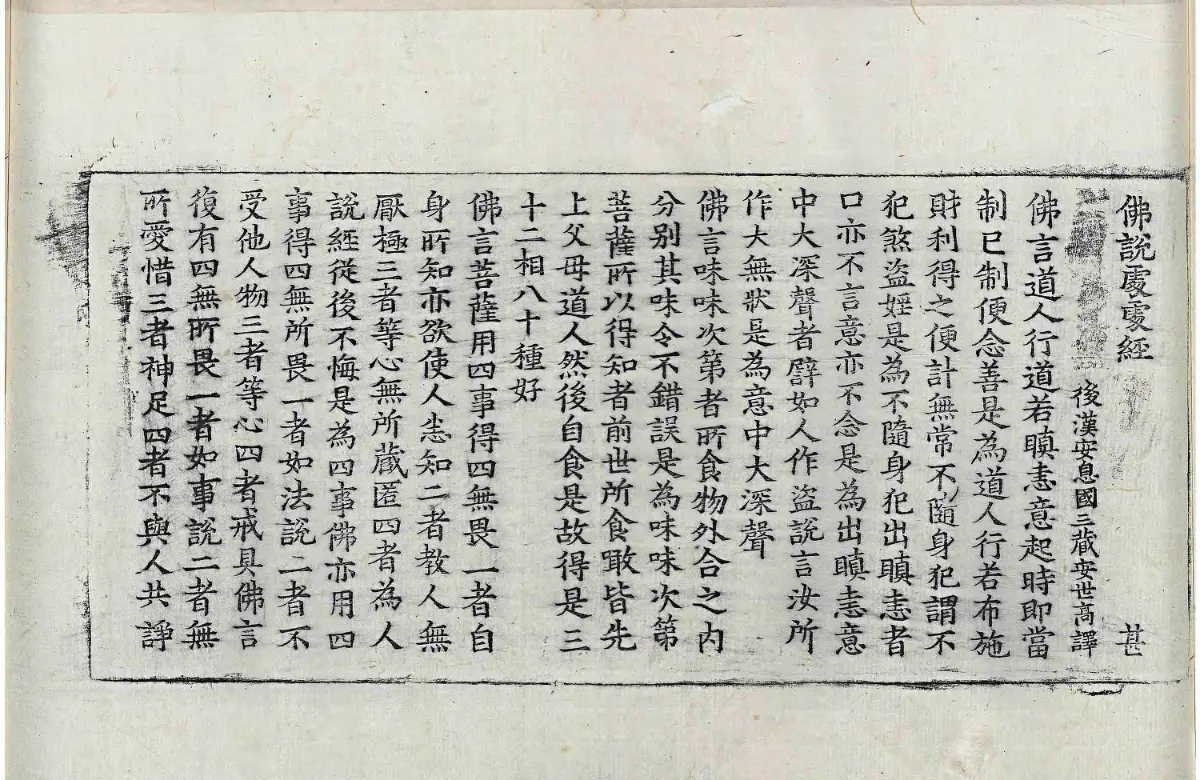 佛說處處經 甚
後漢安息國三藏安世高譯
佛言道人行道若瞋恚意起時即當
制已制便念善是為道人行若布施
財利得之便計無常不隨身犯謂不
犯煞盜婬是為不隨身犯出瞋恚者
口亦不言意亦不念是為出瞋恚意
中大深聲者譬如人作盜說言汝所
作大無狀是為意中大深聲
佛言味味次第者所食物外合之内
分别其味令不錯誤是為味味次第
菩薩所以得知者前世所食噉皆先
上父母道人然後自食是故得是三
十二相八十種好
佛言菩薩用四事得四無畏一者自
身所知亦欲使人悉知二者教人無
厭極三者等心無所藏匿四者為人
說經從後不悔是為四事佛亦用四
事得四無所畏一者如法說二者不
受他人物三者等心四者戒具佛言
復有四無所畏一者如事說二者無
所愛惜三者神足四者不與人共諍